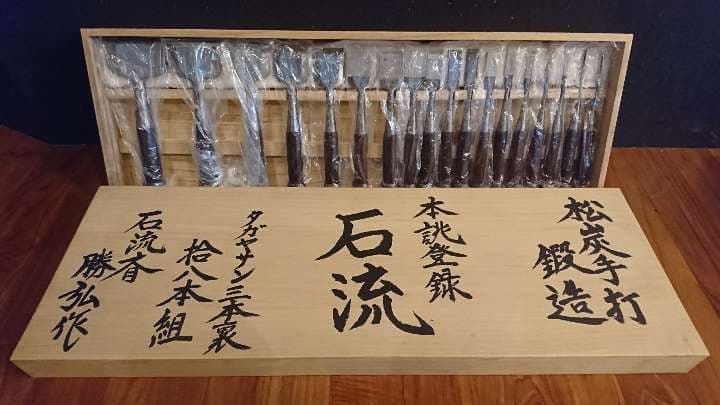 松炭手打
鍛造
本誂登録
石流
タガヤサン三本裏
拾八本組
石流斎
勝弘作